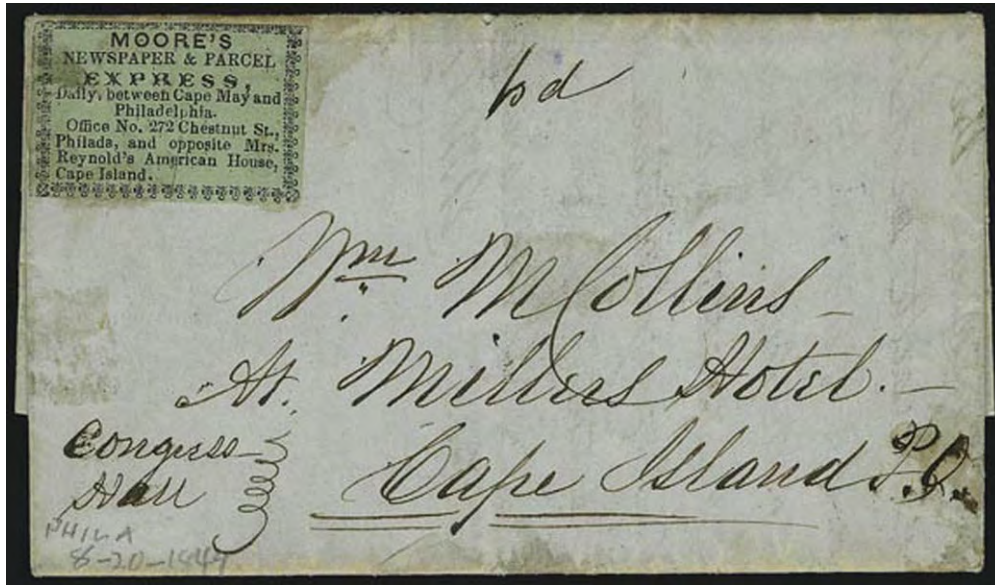 MOORE'S
NEWSPAPER & PARCEL
EXPRESS,
Daily, between Cape May and
Philadelphia.
Office No. 272 Chestnut St.,
Philada, and opposite Mrs.
Reynold's American House,
Cape Island.
pd
Wm M Collins
At. Millers Hotel.
Congress
Hall
Cape Island P.O.
PHILA
8-20-1849